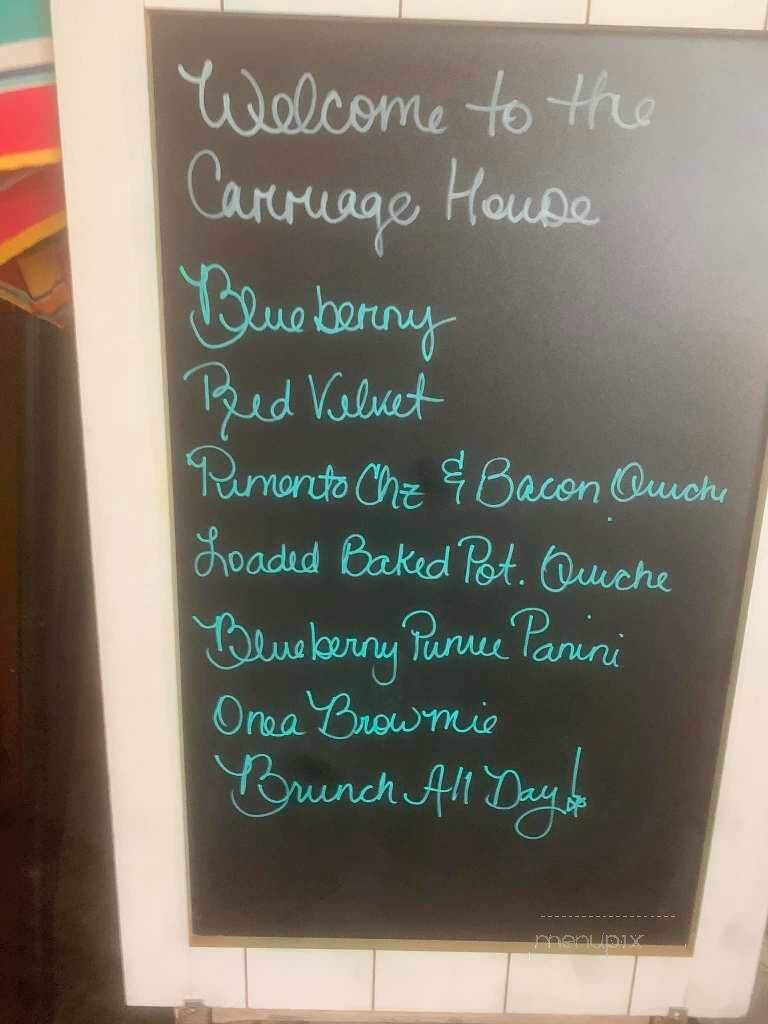 Welcome to the
Carriage House
Blueberry
Red Velvet
Pimento Chz & Bacon Quiche
Loaded Baked Pot. Quiche
Blueberry Panini
Brownie
Brunch All Day!
menupix